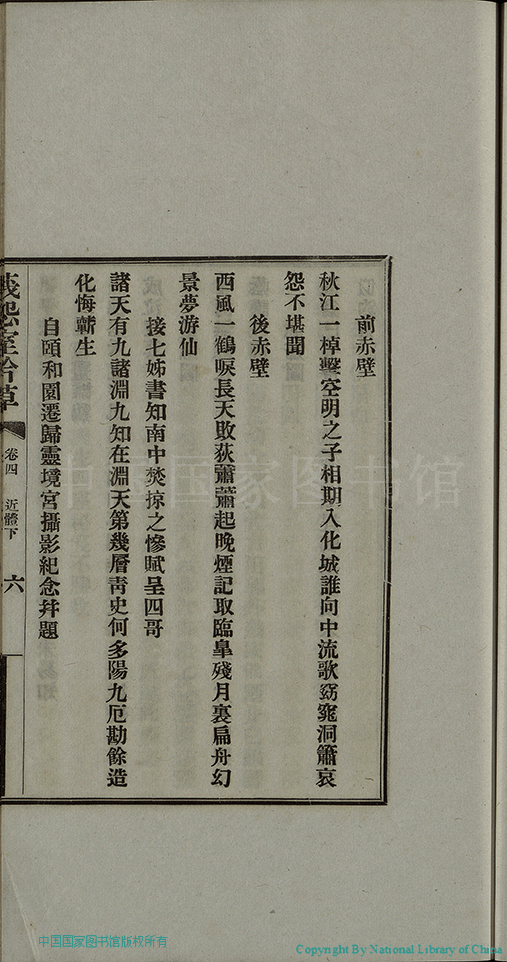 前赤壁
秋江一棹擊空明之子相期入化城誰向中流歌窈窕洞簫哀
怨不堪聞
後赤壁
西風一鶴唳長天敗荻蕭蕭起晚煙記取臨皐殘月裏扁舟幻
景夢游仙
接七姊書知南中焚掠之慘賦呈四哥
諸天有九諸淵九知在淵天第幾層靑史何多陽九厄勘餘造
化悔蘄生
自頤和園遷歸靈境宮攝影紀念幷題
室吟草
卷四
近體下
六
中国国家图书馆
中国国家图书馆版权所有
Copyright By National Library of China